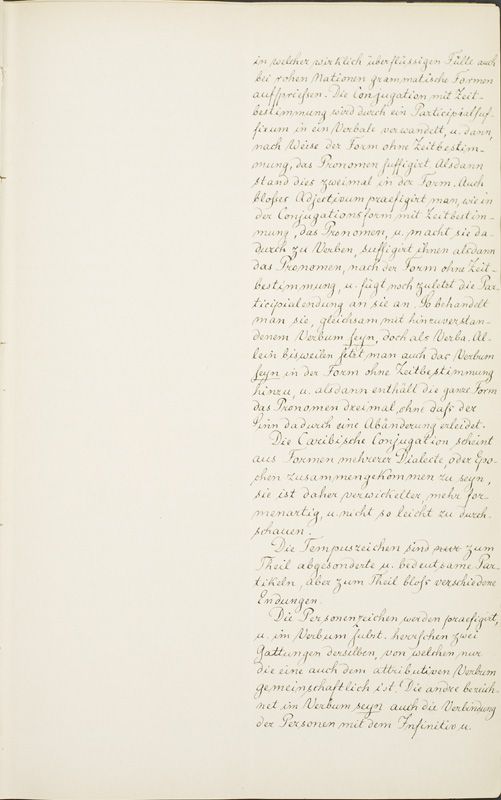 in welcher wirklich überflüssigen Fülle auch
bei rohen Nationen grammatische Formen
aufspriefsen. Die Conjugation mit Zeit-
bestimmung wird durch ein Participialsuf-
fixum in ein Verbale verwandelt, u. dann,
nach Weise der Form ohne Zeitbestim-
mung, das Pronomen suffigirt. Alsdann
stand dies zweimal in der Form. Auch
blofses Adjectivum praefigirt man, wie in
der Conjugationsform mit Zeitbestim-
mung, das Pronomen, u. macht sie da-
durch zu Verben, suffigirt ihnen alsdann
das Pronomen, nach der Form ohne Zeit-
bestimmung, u. fügt noch zuletzt die Par-
ticipialendung an sie an. So behandelt
man sie, gleichsam mit hinzuverstan-
denem Verbum seyn, doch als Verba. Al-
lein bisweilen setzt man auch das Verbum
seyn in der Form ohne Zeitbestimmung
hinzu, u. alsdann enthält die ganze Form
das Pronomen dreimal, ohne dafs der
Sinn dadurch eine Abänderung erleidet.
Die Caribische Conjugation scheint
aus Formen mehrerer Dialecte, oder Epo-
chen zusammengekommen zu seyn,
sie ist daher verwickelter, mehr for-
menartig, u. nicht so leicht zu durch-
schauen.
Die Tempuszeichen sind nur zum
Theil abgesonderte u. bedeutsame Par-
tikeln, aber zum Theil blofs verschiedene
Endungen.
Die Personenzeichen werden praefigirt,
u. im Verbum subst. herrschen zwei
Gattungen derselben, von welchen nur
die eine auch dem attributiven Verbum
gemeinschaftlich ist. Die andre bezeich-
net im Verbum seyn auch die Verbindung
der Personen mit dem Infinitiv u.